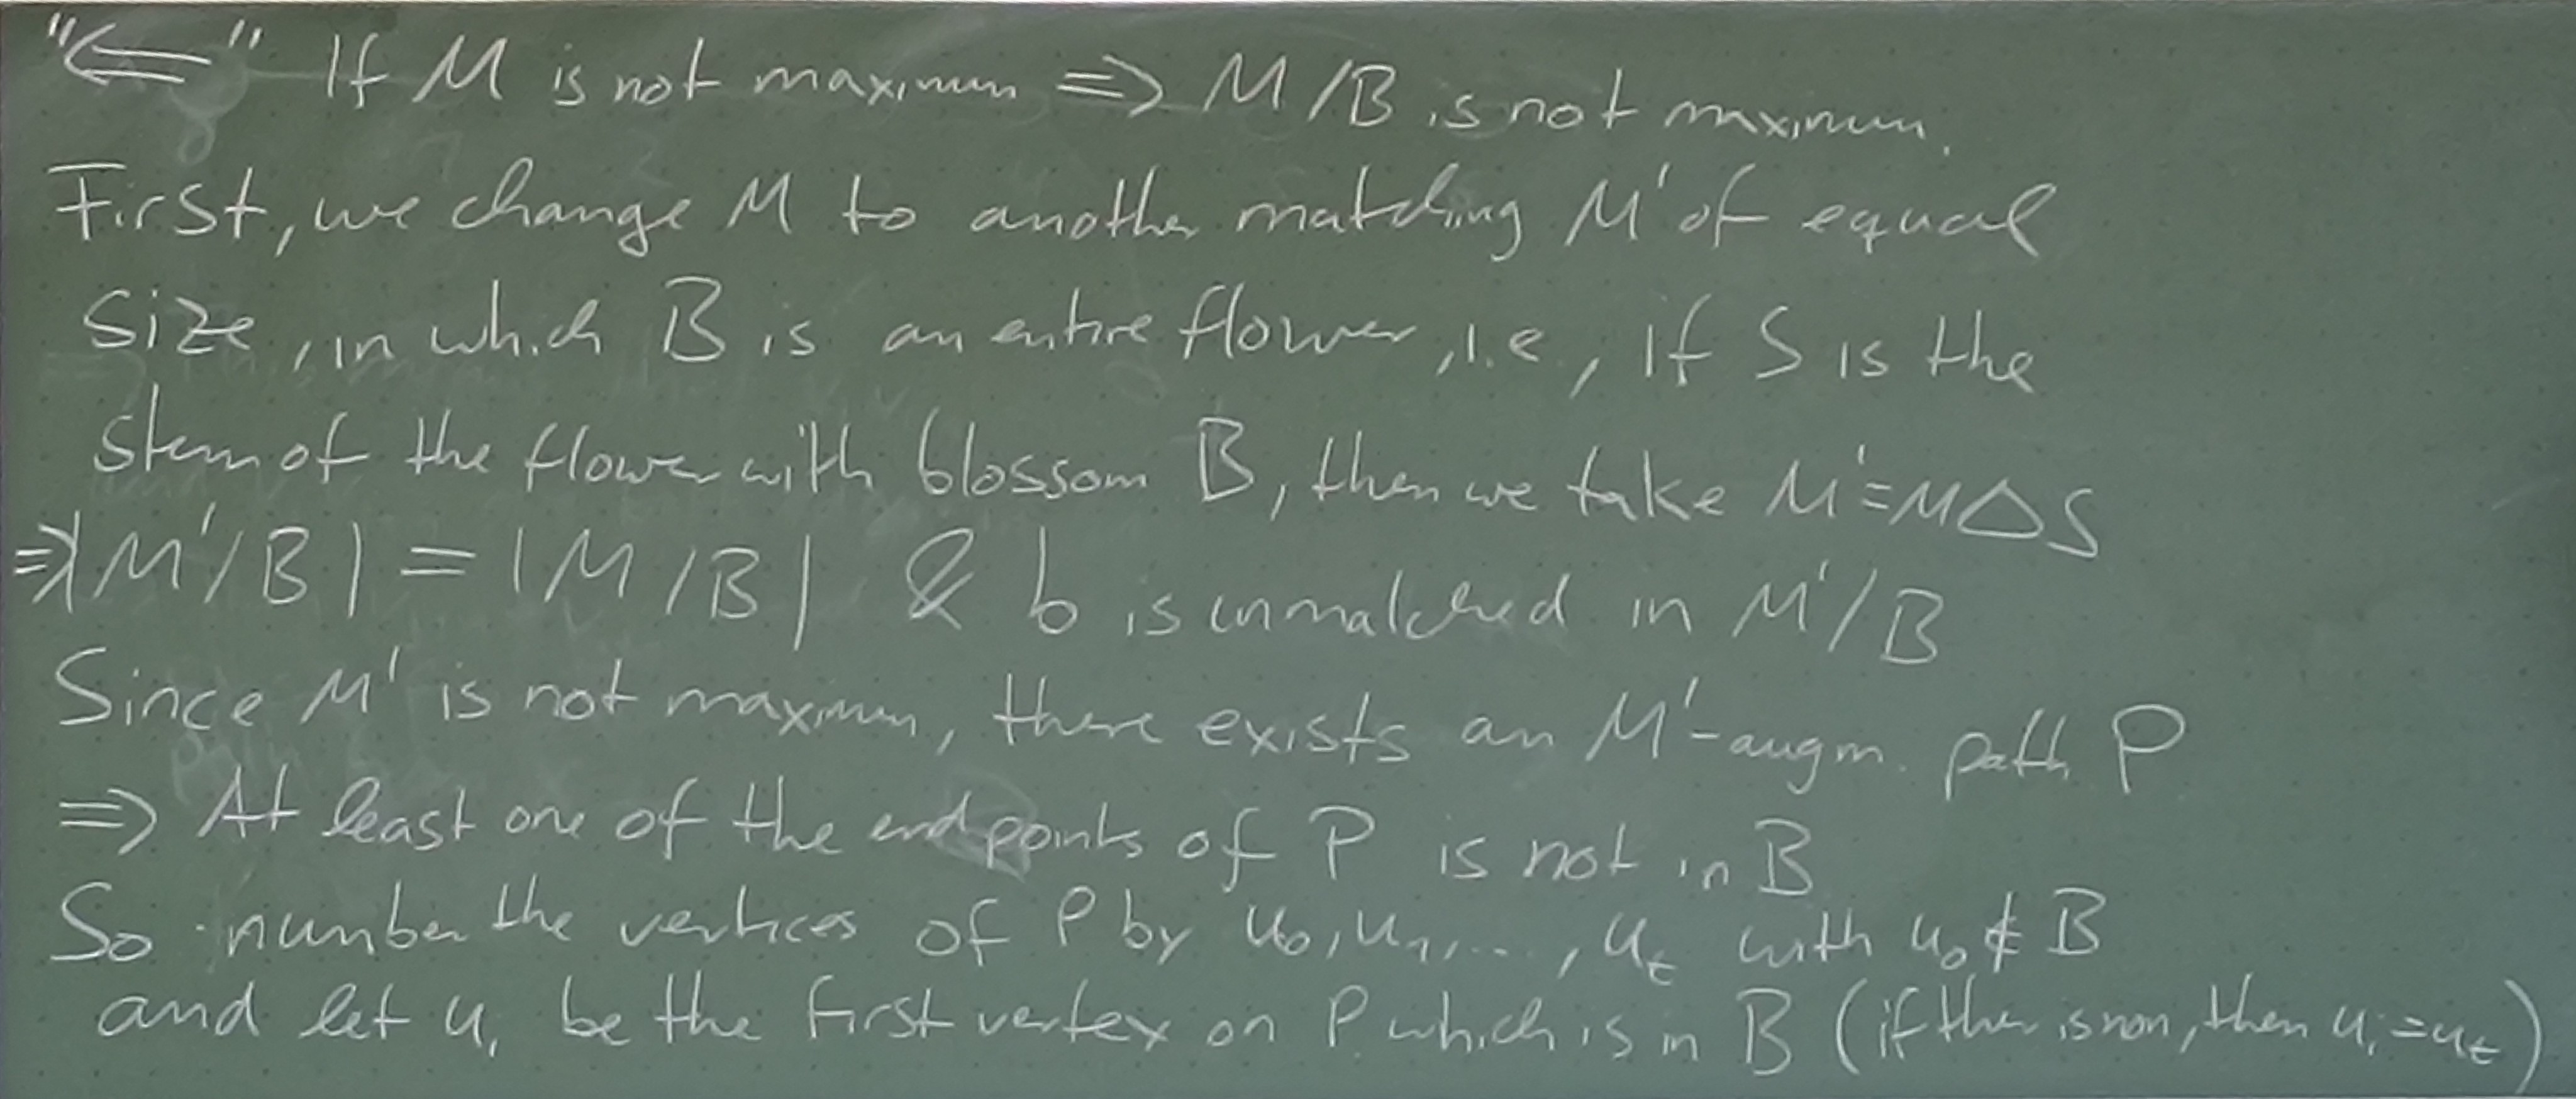 "⇐" If M is not maximum ⇒ M/B is not maximum.
First, we change M to another matching M' of equal
size, in which B is an entire flower, i.e., if S is the
stem of the flower with blossom B, then we take M'=M△S
⇒ |M'/B| = |M/B| & b is unmatched in M'/B
Since M' is not maximum, there exists an M'-augm. path P
⇒ At least one of the endpoints of P is not in B
So number the vertices of P by u₀, u₁, ..., uₜ with u₀ ∉ B
and let uᵢ be the first vertex on P which is in B (if ther is non, then uᵢ=uₜ)